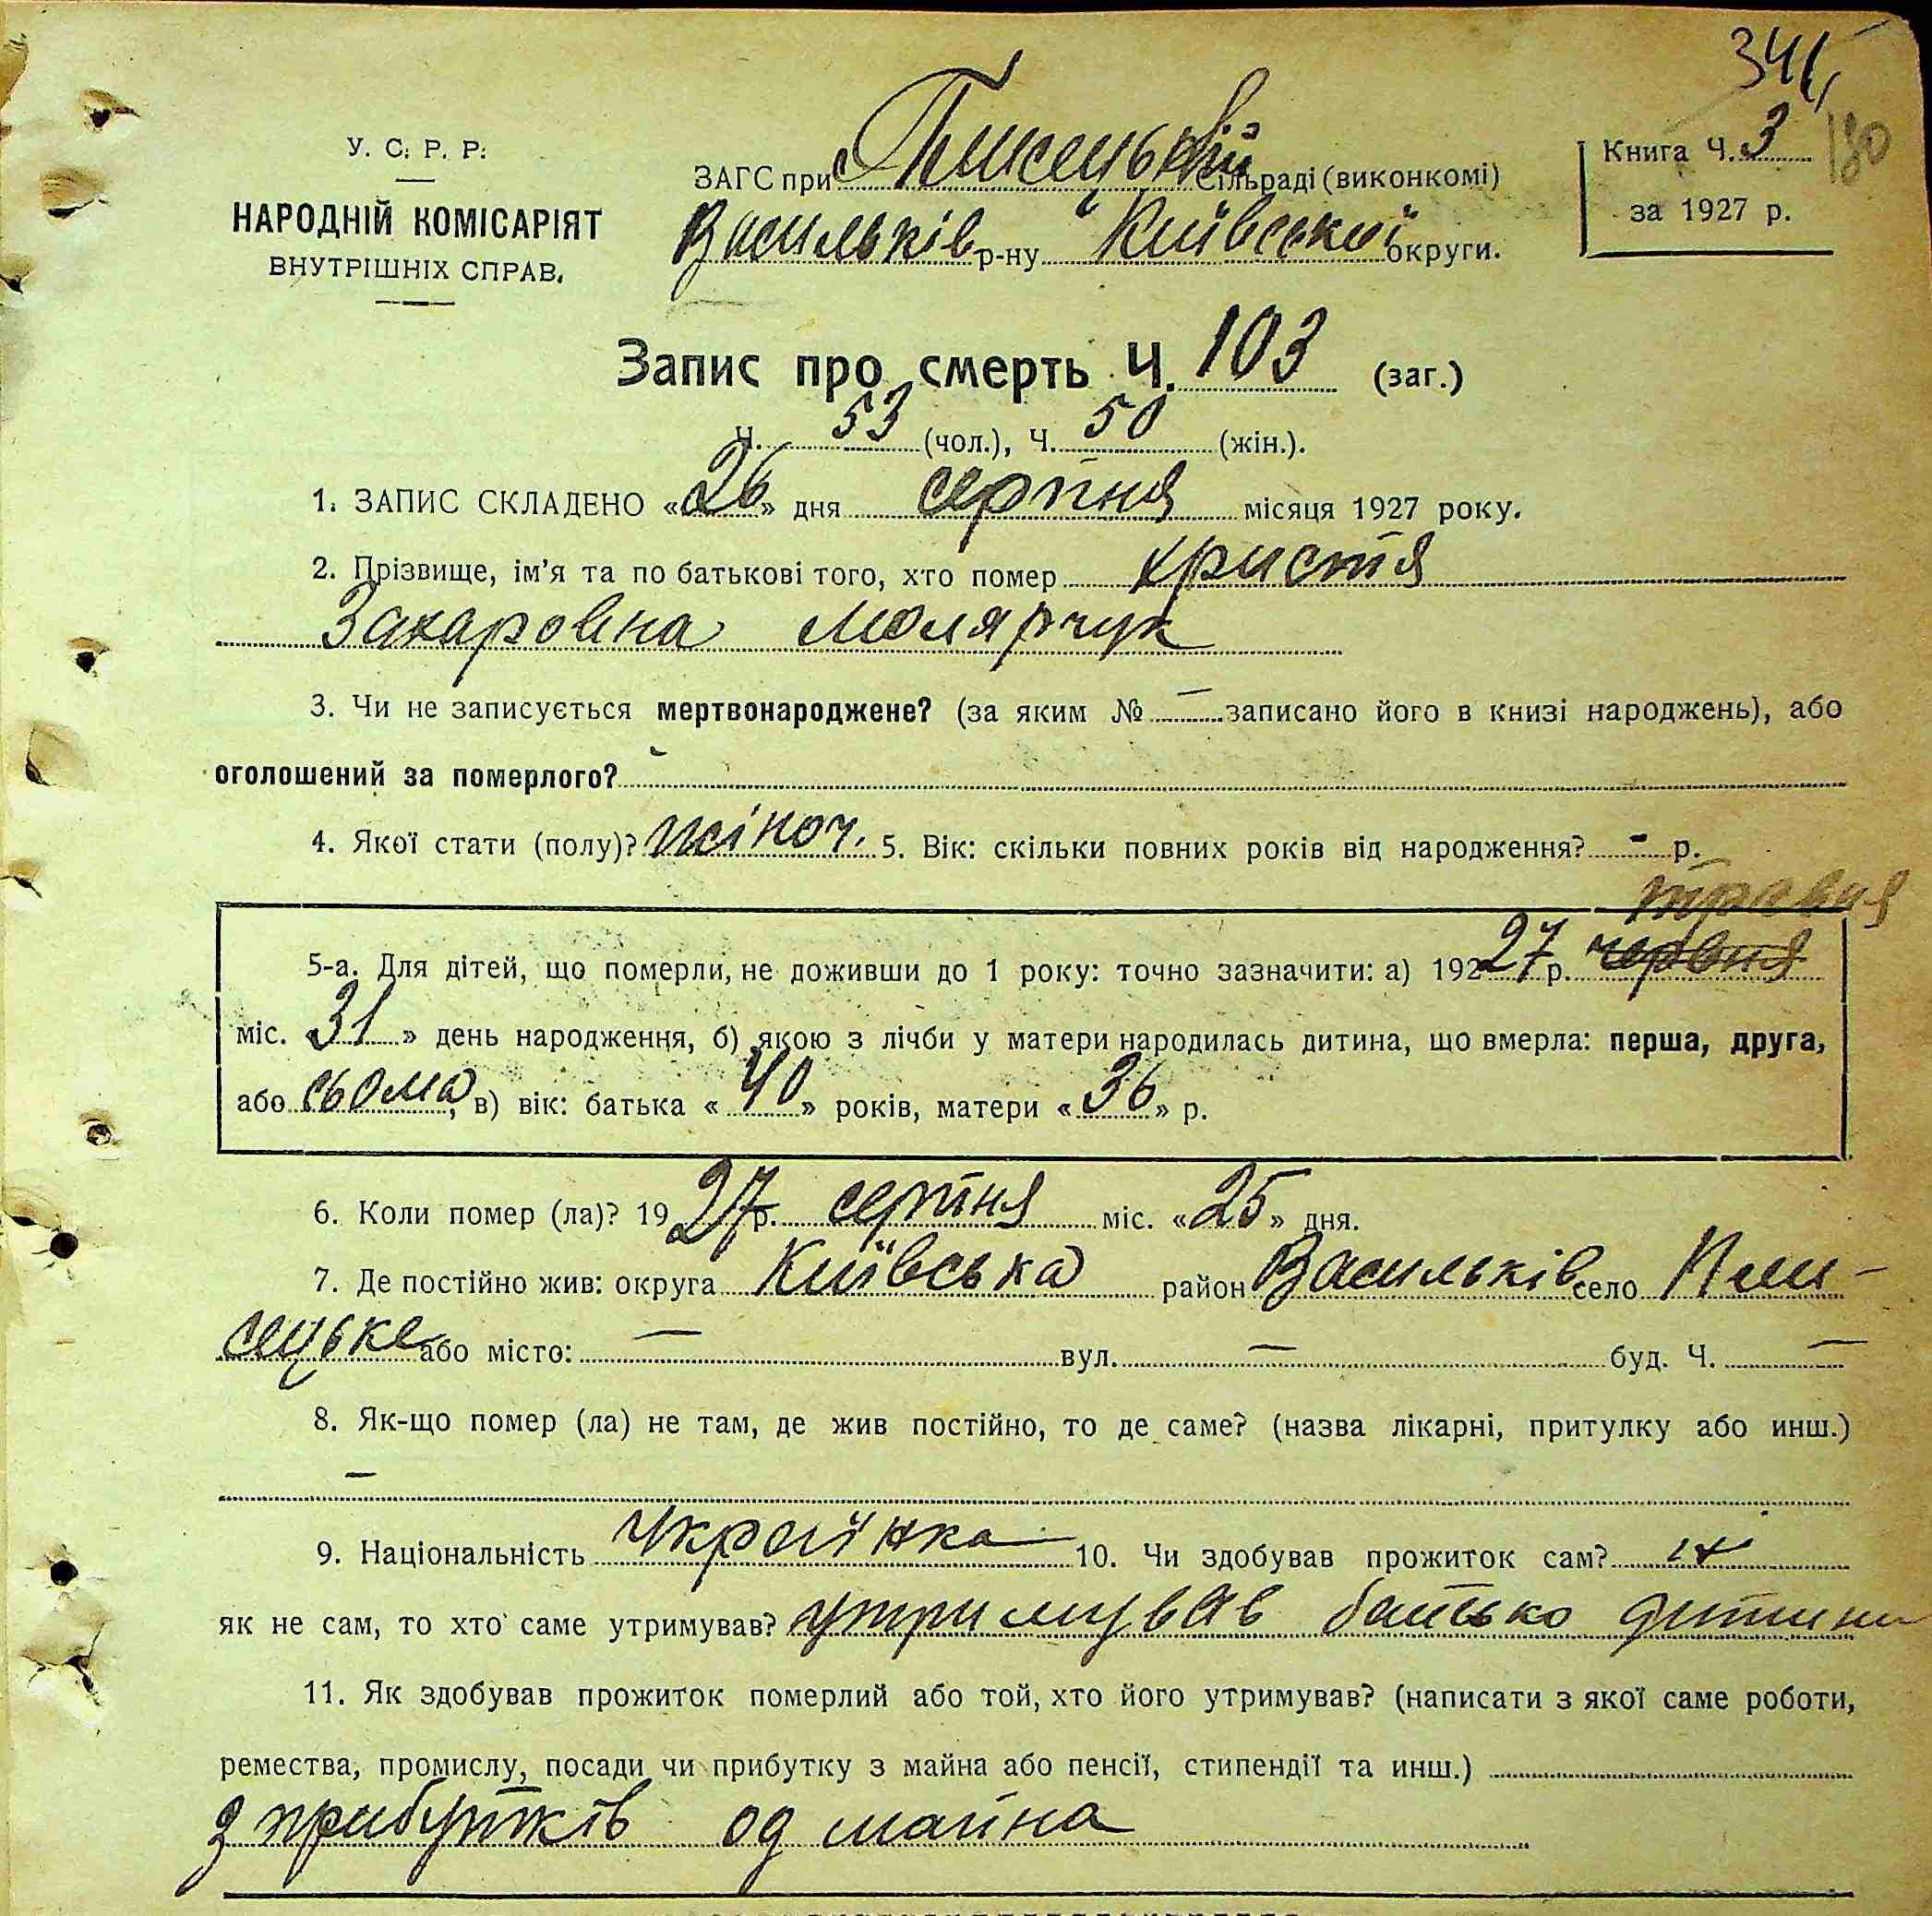 341
180
У. С. Р. Р.
НАРОДНІЙ КОМІСАРІЯТ
ВНУТРІШНІХ СПРАВ.
ЗАГС при Плисецькій сільраді (виконкомі)
Васильків р-ну Київської округи.
Книга Ч. 3
за 1927 р.
Запис про смерть Ч. 103 (заг.)
Ч. 53 (чол.), Ч. 50 (жін.).
1. ЗАПИС СКЛАДЕНО «26» дня серпня місяця 1927 року.
2. Прізвище, ім'я та по батькові того, хто помер Христя
Захаровна Молярчук
3. Чи не записується мертвонароджене? (за яким № — записано його в книзі народжень), або
оголошений за померлого?
4. Якої стати (полу)? жіноч. 5. Вік: скільки повних років від народження? - р.
травня
5-а. Для дітей, що померли, не доживши до 1 року: точно зазначити: а) 1927 р. червня
міс. «31» день народження, б) якою з лічби у матери народилась дитина, що вмерла: перша, друга,
або сьома, в) вік: батька «40» років, матери «36» р.
6. Коли помер (ла)? 1927 р. серпня міс. «25» дня.
7. Де постійно жив: округа Київська район Васильків село Пли-
сецьке або місто: — вул. — буд. Ч. —
8. Як-що помер (ла) не там, де жив постійно, то де саме? (назва лікарні, притулку або инш.)
—
9. Національність Українка 10. Чи здобував прожиток сам?
як не сам, то хто саме утримував? утримував батько дитини
11. Як здобував прожиток померлий або той, хто його утримував? (написати з якої саме роботи,
ремества, промислу, посади чи прибутку з майна або пенсії, стипендії та инш.)
з прибутків од майна